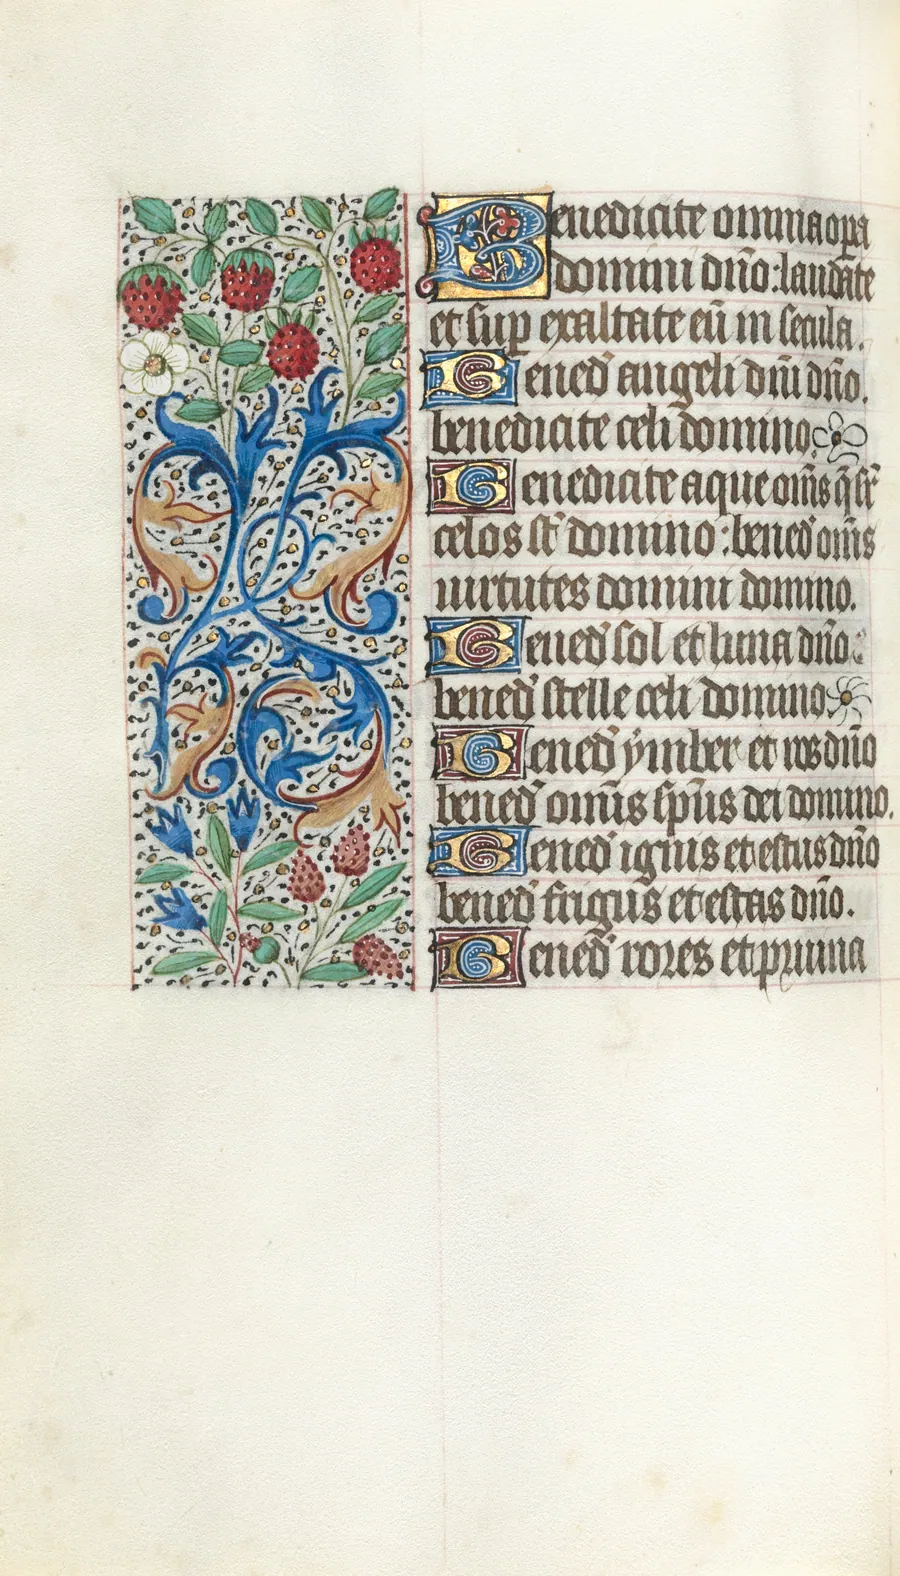 Benedicite omnia opa
domini dño: laudate
et sup exaltate eū in secula.
Bened' angeli dñi dño.
benedicite celi domino
Benedicite aque om̄s q̄ sr̄
celos st' domino: bened' om̄s
uirtutes domini domino.
Bened' sol et luna dño
bened' stelle celi domino
Bened' ymber et ros dño
bened' omīs sp̄us dei domino.
Bened' ignis et estus dño
bened' frigus et estas dño.
Bened' rores et pruina